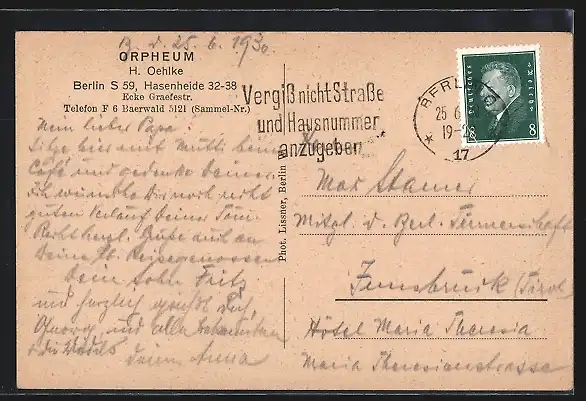 B. d. 25. 6. 1930
ORPHEUM
H. Oehlke
Berlin S 59, Hasenheide 32-38
Ecke Graefestr.
Telefon F 6 Baerwald 5121 (Sammel-Nr.)
Vergiß nicht Straße
und Hausnummer
anzugeben
BERLIN
25 6
19-2
17
Deutsches Reich
8 8
Mein lieber Papa!
Sitze hier mit Mutti beim
Café und gedenke Deiner.
Ich wünsche Dir noch recht
guten Verlauf Deiner
Recht herzl. Grüße auch an
Deine Reisegenossen
Dein Sohn Fritz
und herzlich grüßt Dich,
und alle Bekannten
Deine Anna
Phot. Lissner, Berlin
Max Stamer
Mitgl. d. Berl. Turnerschaft
Innsbruck (Tirol)
Hôtel Maria Theresia
Maria Theresienstrasse